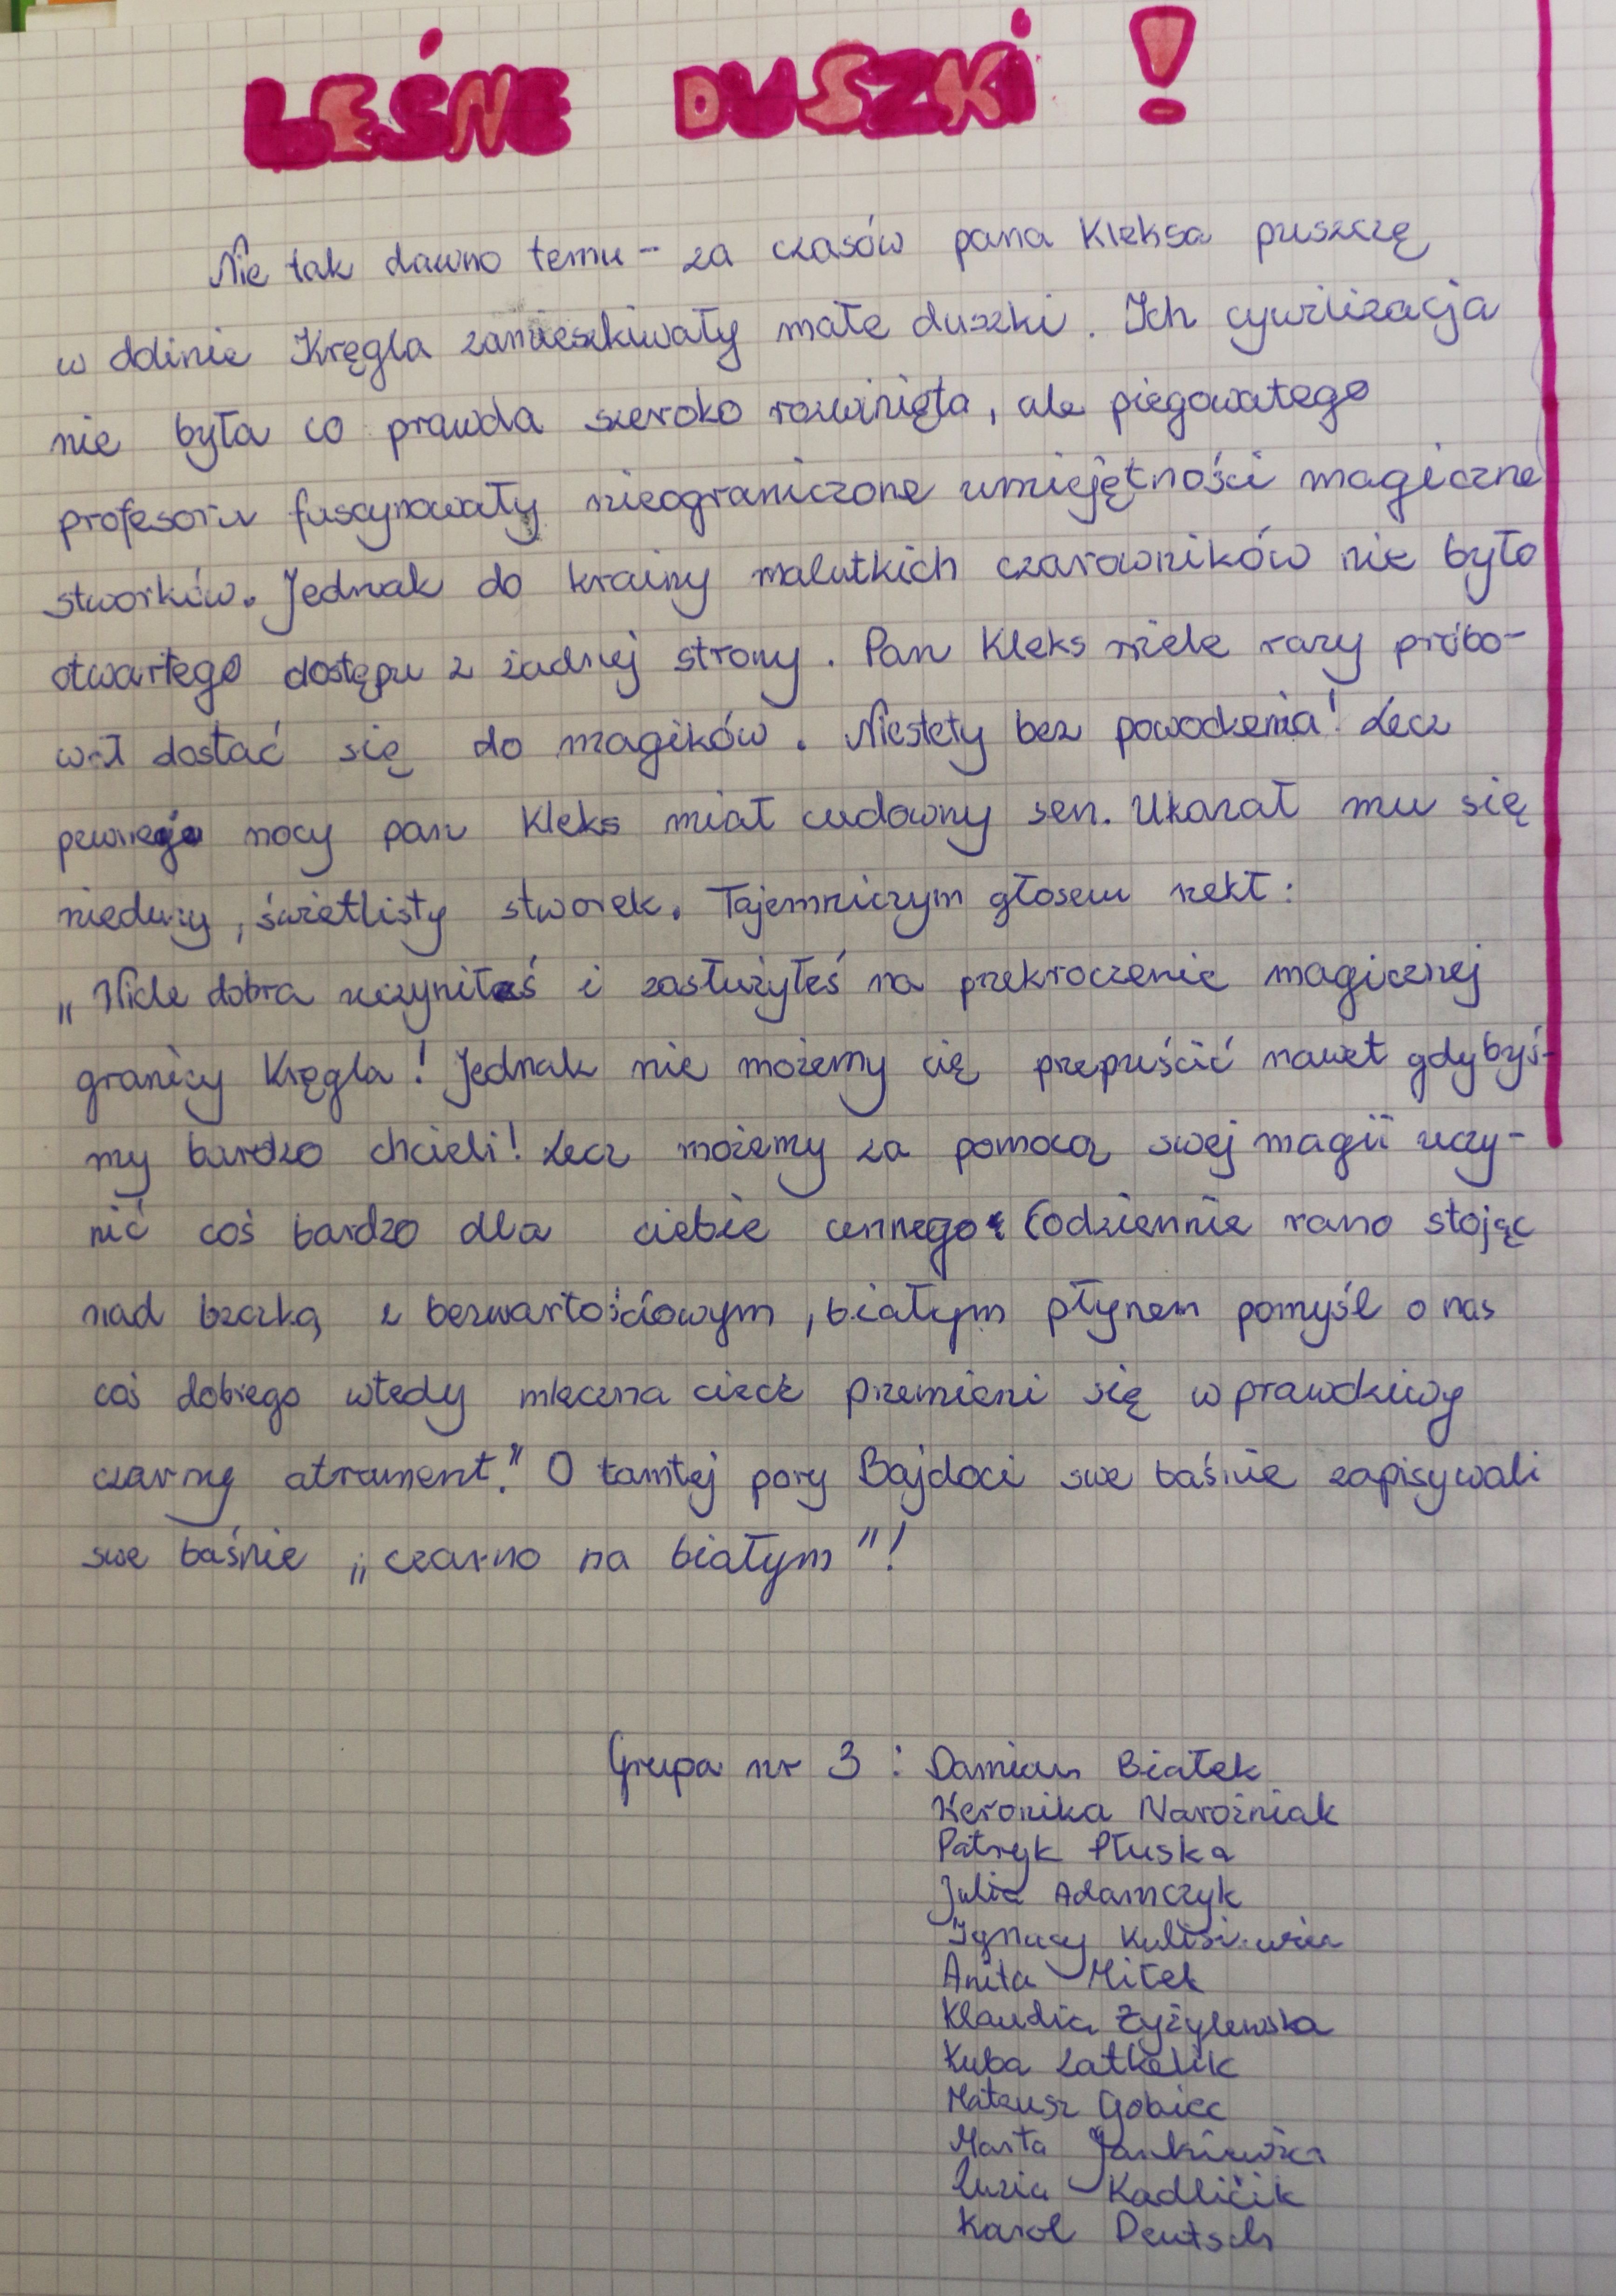 LEŚNE DUSZKI !
Nie tak dawno temu - za czasów pana Kleksa puszczę
w dolinie Kręgla zamieszkiwały małe duszki. Ich cywilizacja
nie była co prawda szeroko rozwinięta, ale piegowatego
profesora fascynowały nieograniczone umiejętności magiczne
stworków. Jednak do krainy malutkich czarowników nie było
otwartego dostępu z żadnej strony. Pan Kleks wiele razy próbo-
wał dostać się do magików. Niestety bez powodzenia! Lecz
pewnej nocy pan Kleks miał cudowny sen. Ukazał mu się
nieduży, świetlisty stworek. Tajemniczym głosem rzekł:
„Wiele dobra uczyniłeś i zasłużyłeś na przekroczenie magicznej
granicy Kręgla! Jednak nie możemy cię przepuścić nawet gdybyś-
my bardzo chcieli! Lecz możemy za pomocą swej magii uczy-
nić coś bardzo dla ciebie cennego. Codziennie rano stojąc
nad beczką z bezwartościowym, białym płynem pomyśl o nas
coś dobrego wtedy mleczna ciecz przemieni się w prawdziwy
czarny atrament." O tamtej pory Bajdoci swe baśnie zapisywali
swe baśnie „czarno na białym"!
Grupa nr 3 : Damian Białek
Weronika Narożniak
Patryk Płuska
Julia Adamczyk
Ignacy
Anita Miłek
Klaudia Zyżylewska
Kuba Zatkalik
Mateusz Gobiec
Marta Jankiewicz
Zuzia Kadlićik
Karol Deutsch